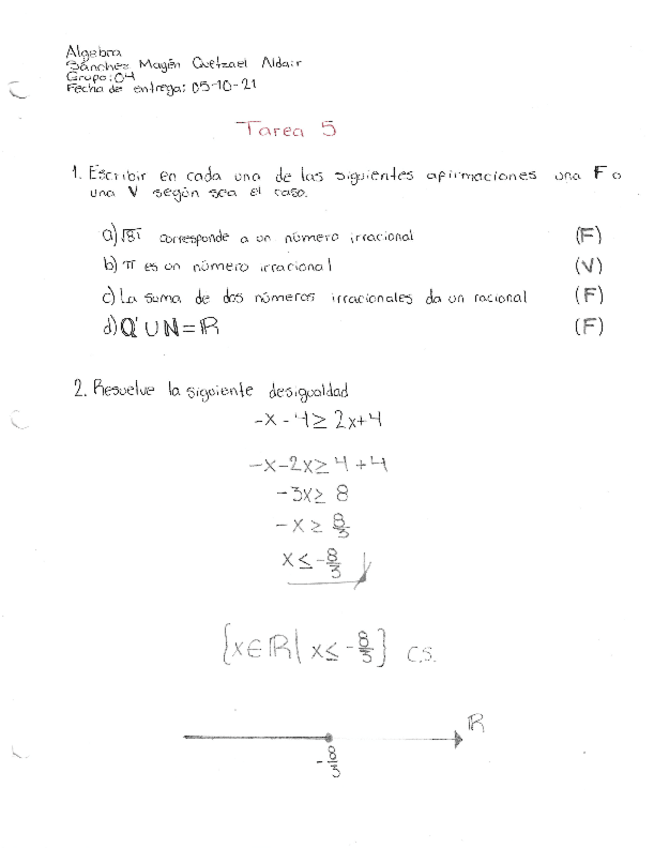 Algebra
Sánchez Magán Quetzael Aldair
Grupo: 04
Fecha de entrega: 05-10-21
Tarea 5
1. Escribir en cada una de las siguientes afirmaciones una F o
una V según sea el caso.
a) √81 corresponde a un número irracional (F)
b) π es un número irracional (V)
c) La suma de dos números irracionales da un racional (F)
d) Q' U N = ℝ (F)
2. Resuelve la siguiente desigualdad
-x - 4 ≥ 2x+4
-x-2x ≥ 4+4
-3x ≥ 8
-x ≥ 8/3
x ≤ -8/3
{x∈ℝ| x ≤ -8/3} C.S.
ℝ
-8/3